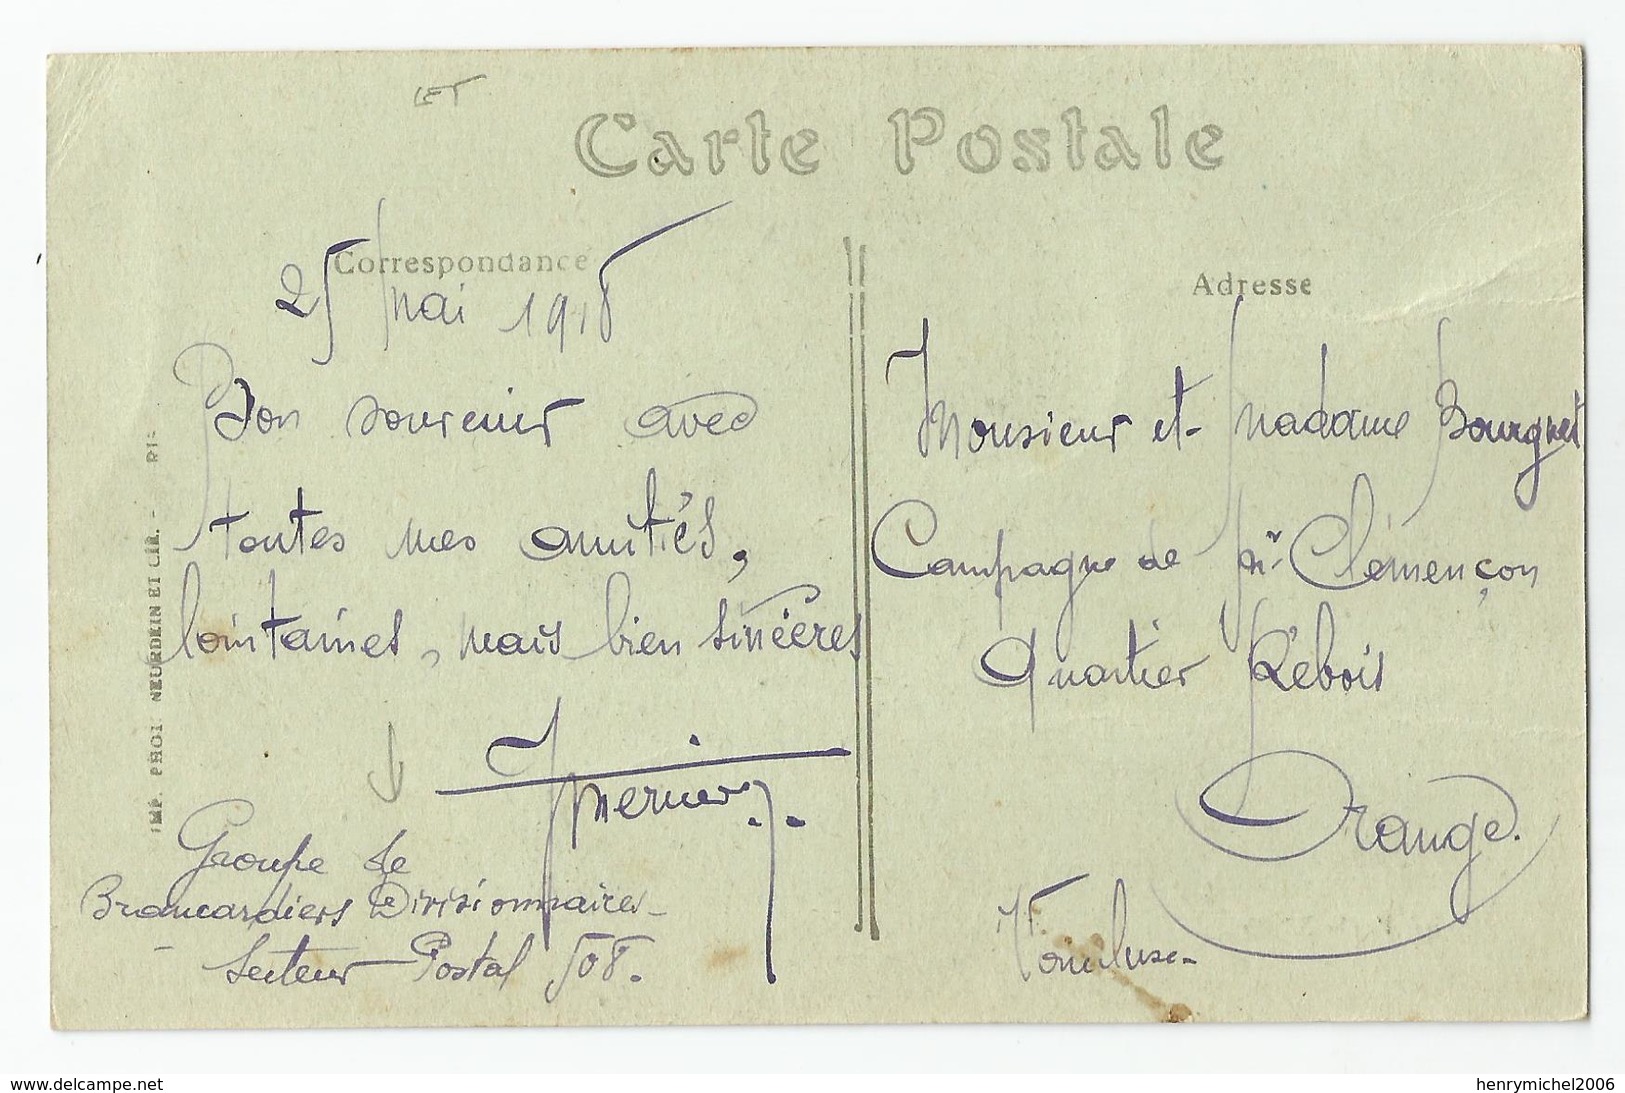 Carte Postale
Correspondance
25 mai 1918
Bon souvenir avec
toutes mes amitiés,
lointaines, mais bien sincères
Groupe de
Brancardiers Divisionnaires
Secteur Postal 508.
IMP. PHOT NEURDEIN ET CIE. -
Adresse
Monsieur et Madame Bourgnet
Campagne de Mr Clémençon
Quartier Rébois
Orange.
Vaucluse
www.delcampe.net
henrymichel2006